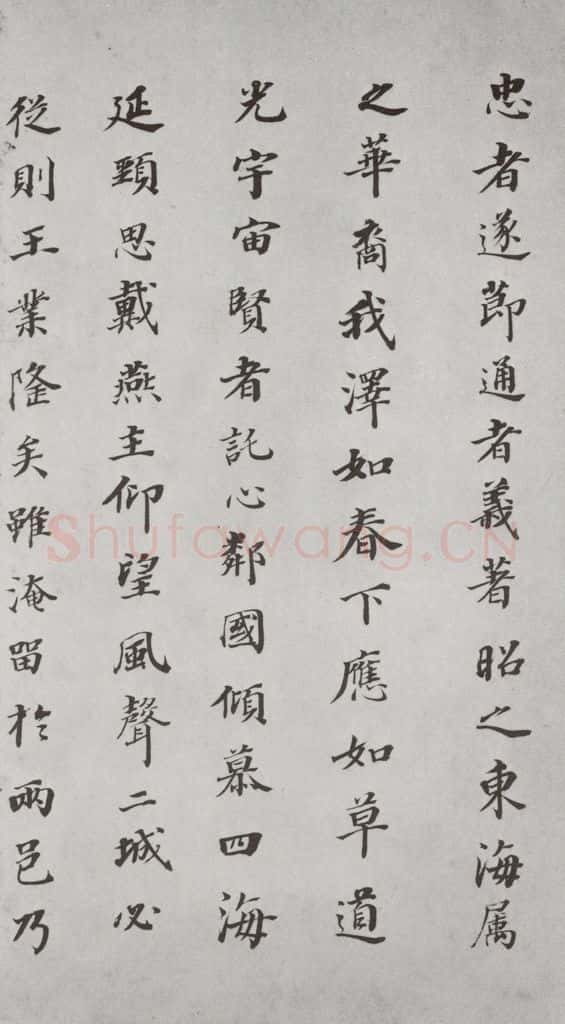 忠者遂節通者義著昭之東海属
之華裔我澤如春下應如草道
光宇宙賢者託心鄰國傾慕四海
延頸思戴燕主仰望風聲二城必
從則王業隆矣雖淹留於兩邑乃
Shufawang.CN